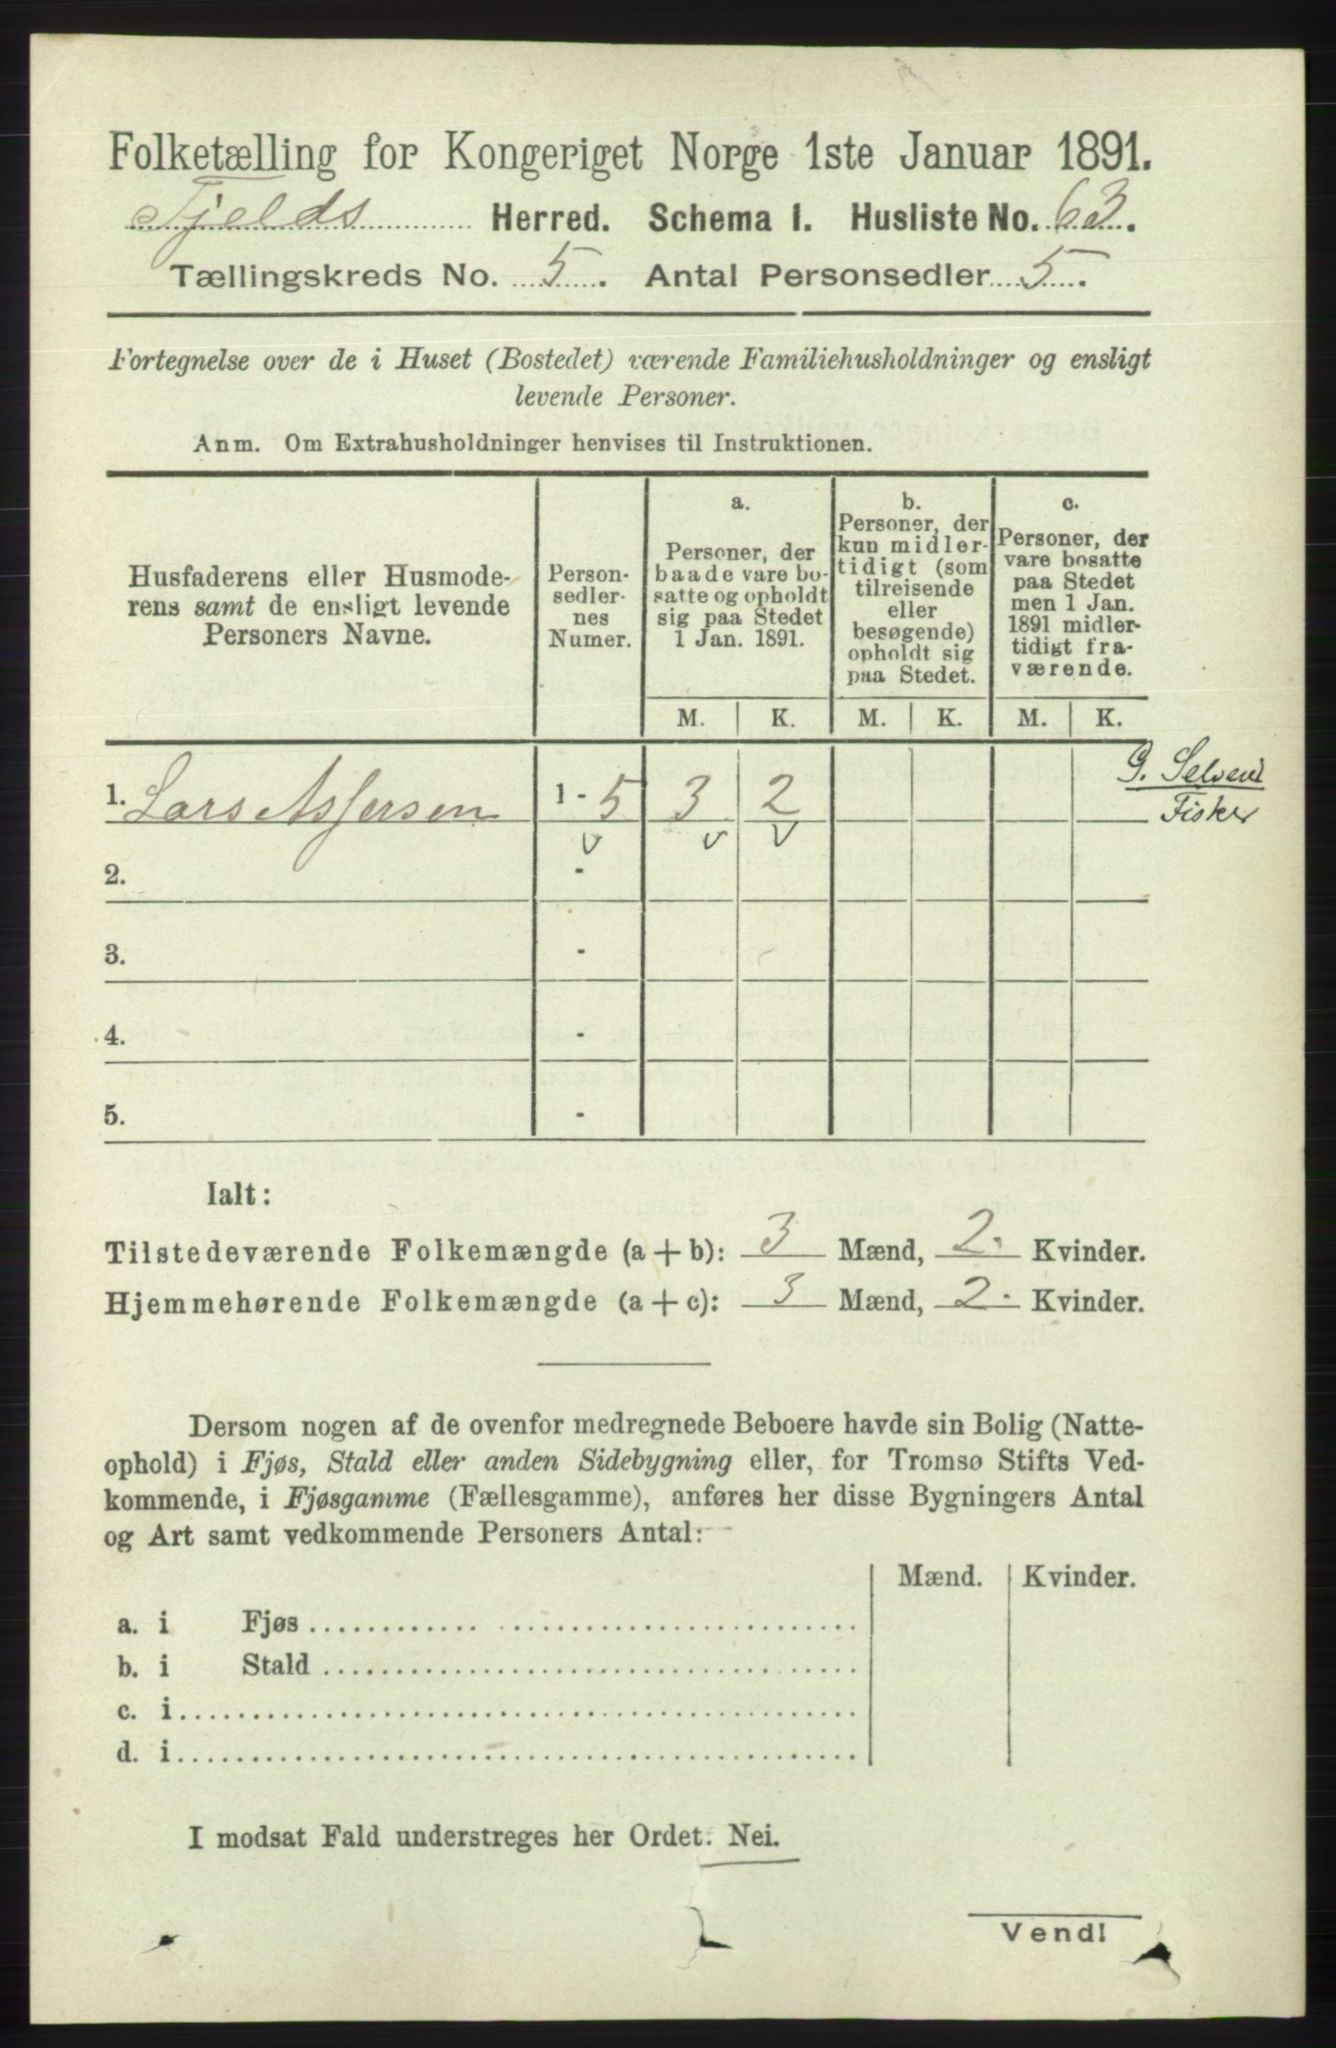 Folketælling for Kongeriget Norge 1ste Januar 1891.
Fjelds Herred. Schema I. Husliste No. 63.
Tællingskreds No. 5. Antal Personsedler 5.
Fortegnelse over de i Huset (Bostedet) værende Familiehusholdninger og ensligt
levende Personer.
Anm. Om Extrahusholdninger henvises til Instruktionen.
Husfaderens eller Husmode-
rens samt de ensligt levende
Personers Navne.
Person-
sedler-
nes
Numer.
a.
Personer, der
baade vare bo-
satte og opholdt
sig paa Stedet
1 Jan. 1891.
b.
Personer, der
kun midler-
tidigt (som
tilreisende
eller
besøgende)
opholdt sig
paa Stedet.
c.
Personer, der
vare bosatte
paa Stedet
men 1 Jan.
1891 midler-
tidigt fra-
værende.
M. K. M. K. M. K.
1. Lars Assersen 1 - 5 3 2
G.
Fisker
v v v
2. -
3. -
4. -
5. -
Ialt:
Tilstedeværende Folkemængde (a + b): 3 Mænd, 2. Kvinder.
Hjemmehørende Folkemængde (a + c): 3 Mænd, 2. Kvinder.
Dersom nogen af de ovenfor medregnede Beboere havde sin Bolig (Natte-
ophold) i Fjøs, Stald eller anden Sidebygning eller, for Tromsø Stifts Ved-
kommende, i Fjøsgamme (Fællesgamme), anføres her disse Bygningers Antal
og Art samt vedkommende Personers Antal:
Mænd. Kvinder.
a. i Fjøs
b. i Stald
c. i
d. i
I modsat Fald understreges her Ordet. Nei.
Vend!